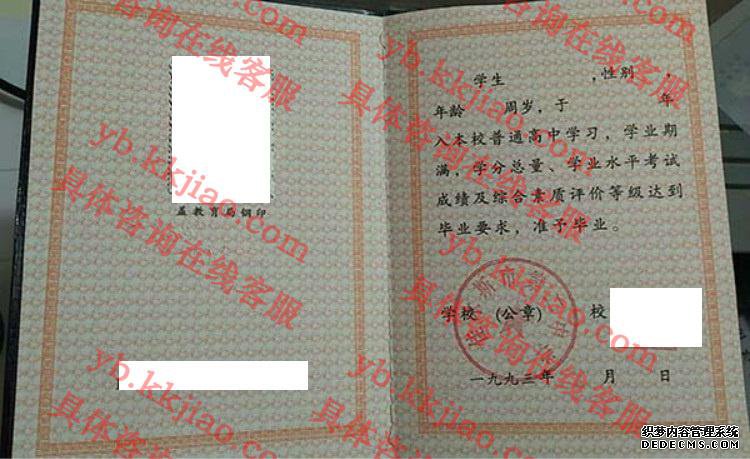 盖教育局钢印
学生 ,性别 ,
年龄 周岁，于 年
入本校普通高中学习，学业期
满，学分总量、学业水平考试
成绩及综合素质评价等级达到
毕业要求，准予毕业。
学校 (公章) 校
一九九三年 月 日
yb.kkjiao.com
具体咨询在线客服
yb.kkjiao.com
具体咨询在线客服
yb.kkjiao.com
具体咨询在线客服
yb.kkjiao.com
具体咨询在线客服
yb.kkjiao.com
具体咨询在线客服
织梦内容管理系统
DEDECMS.COM